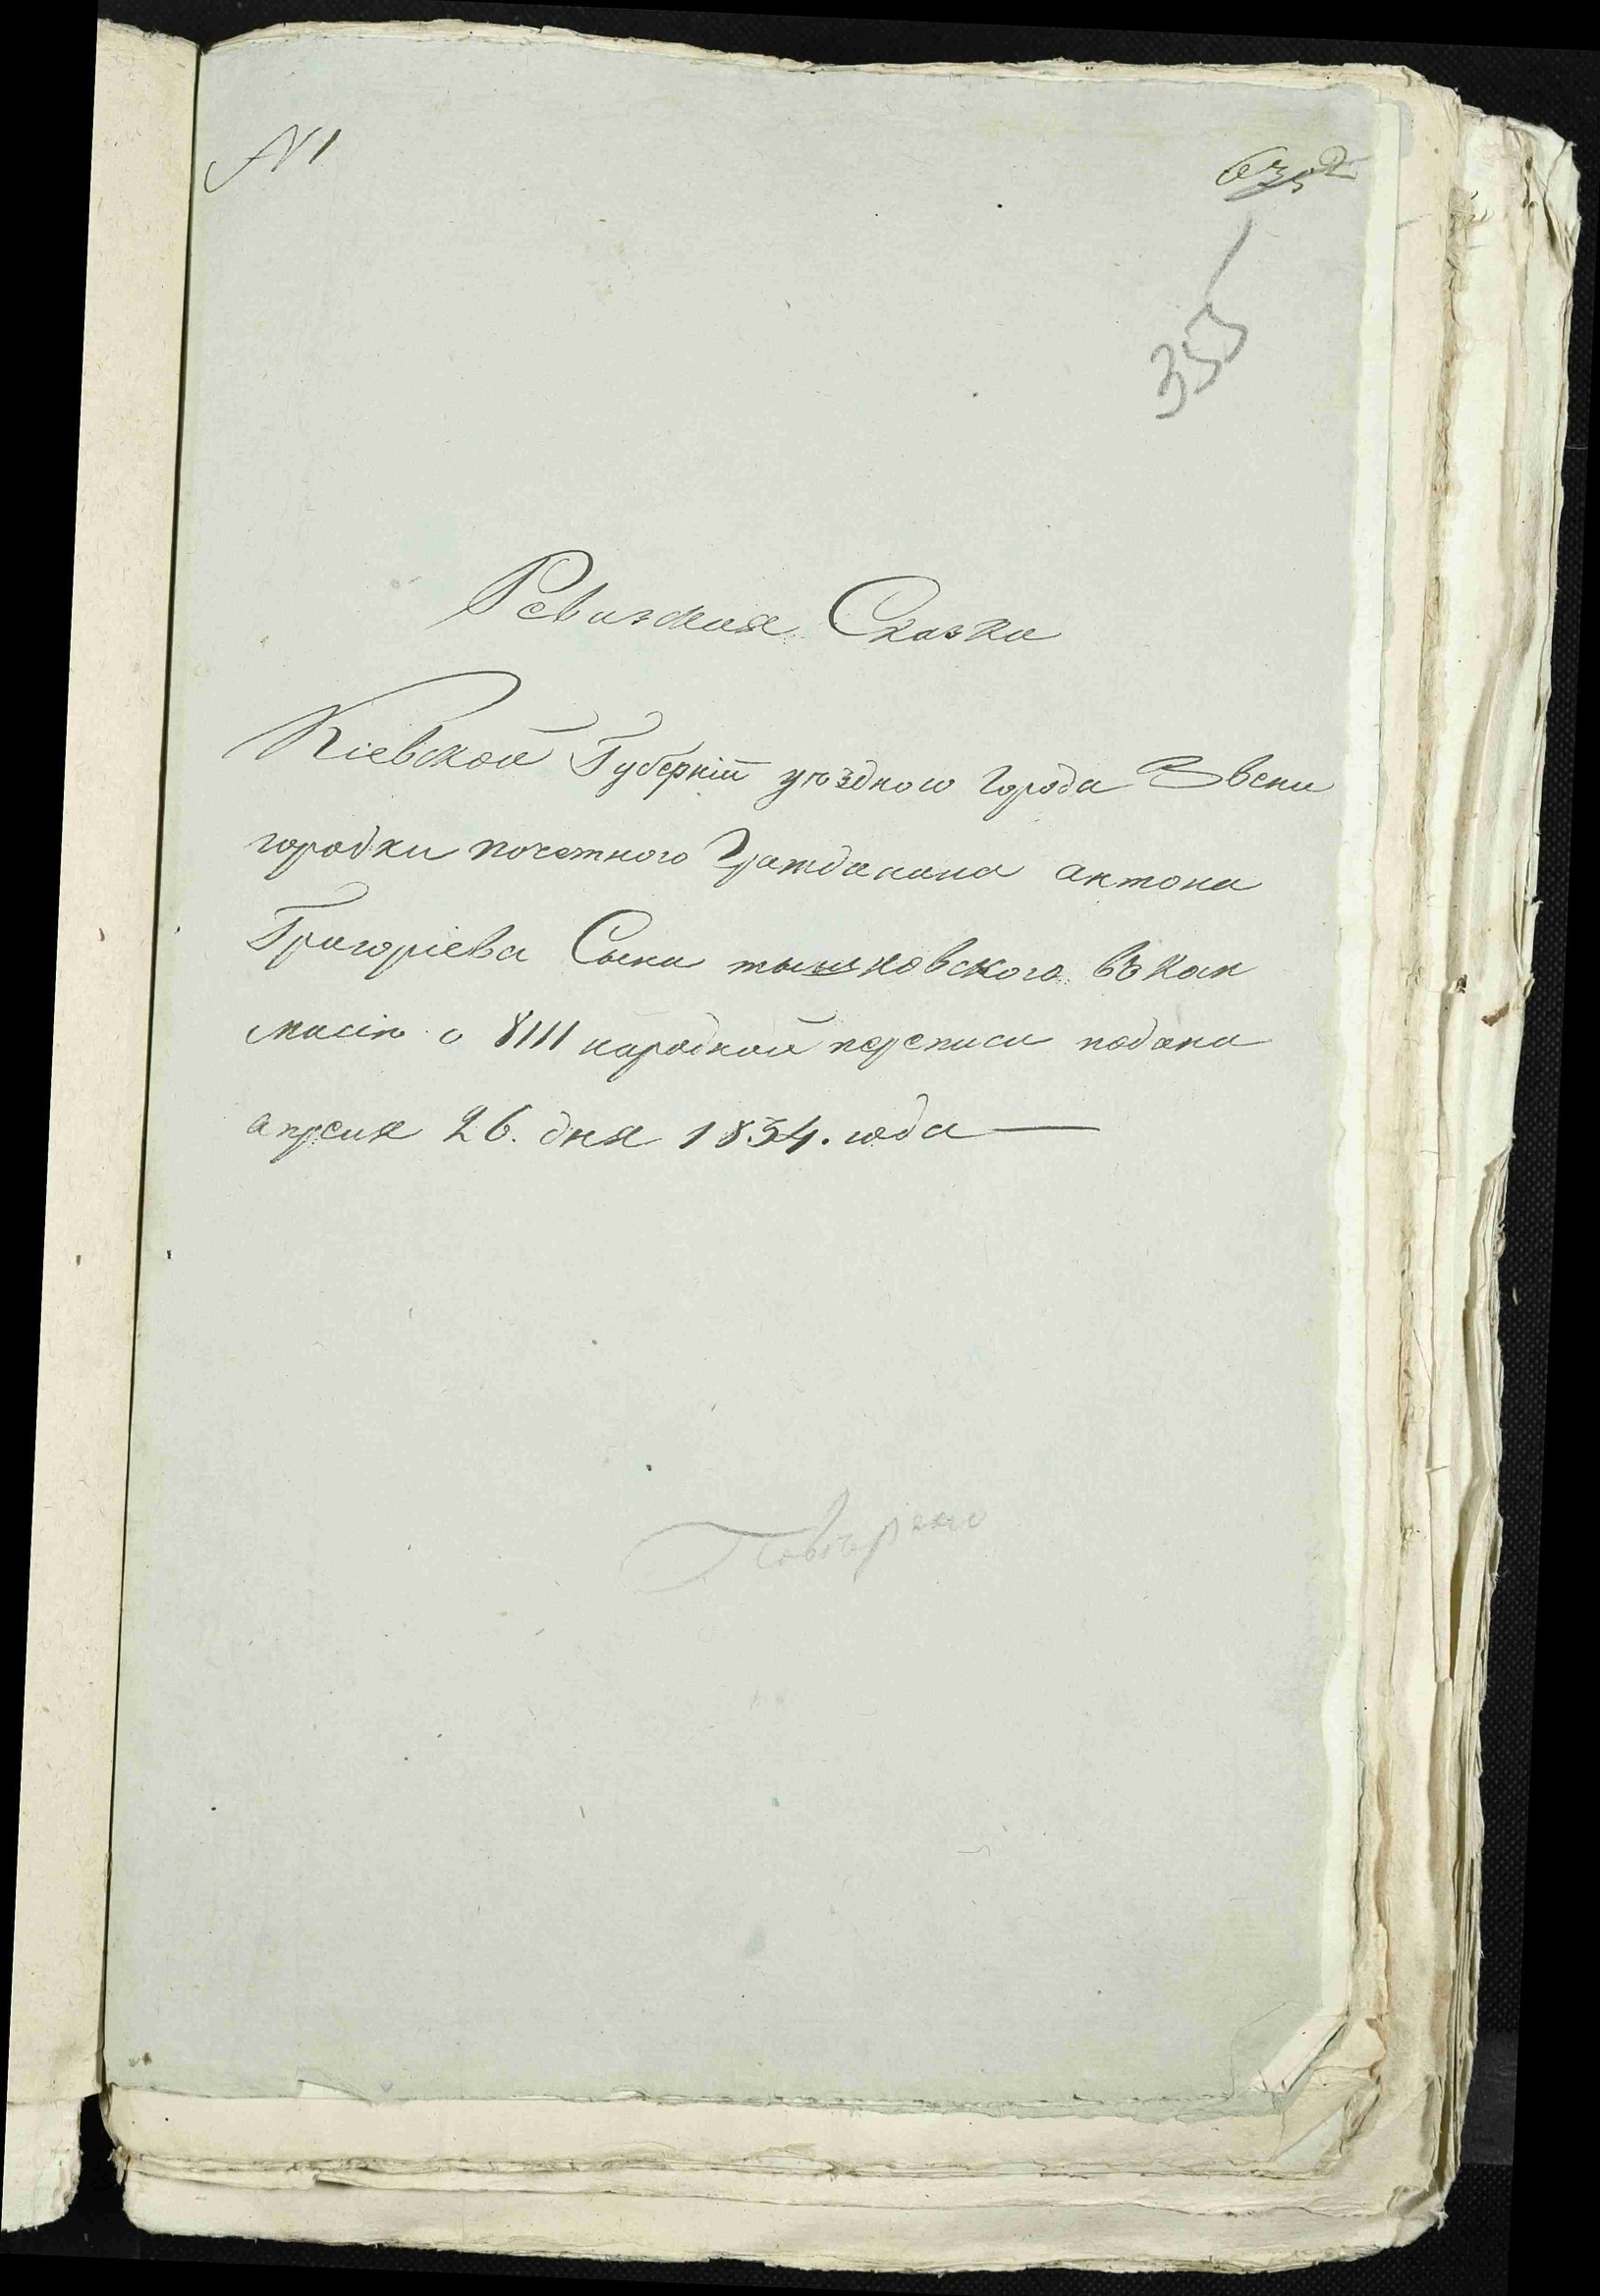 № 1
355
Ревизская Сказка
Кіевской Губерніи уѣзднаго города Звени
городки почетного Гражданина антона
Григоріева Сына тышковского въ кан
о 8111 народной переписи подана
апреля 26. дня 1854. года —
Повѣрено